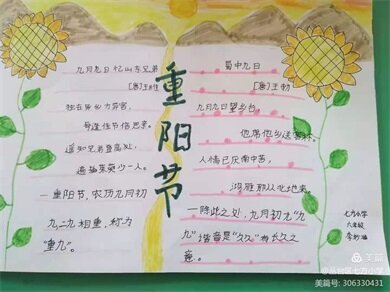 九月九日忆山东兄弟
[唐]王维
独在异乡为异客,
每逢佳节倍思亲。
遥知兄弟登高处,
遍插茱萸少一人。
重阳节,农历九月初
九,二九相重,称为
"重九"。
重阳节
蜀中九日
[唐]王勃
九月九日望乡台,
他席他乡送客杯。
人情已厌南中苦,
鸿雁那从北地来。
除此之处,九月初九"九
九"谐音是"久久"有长久之
意。
七方小学
六年级
美篇
@品台区七方小学
美篇号: 306330431